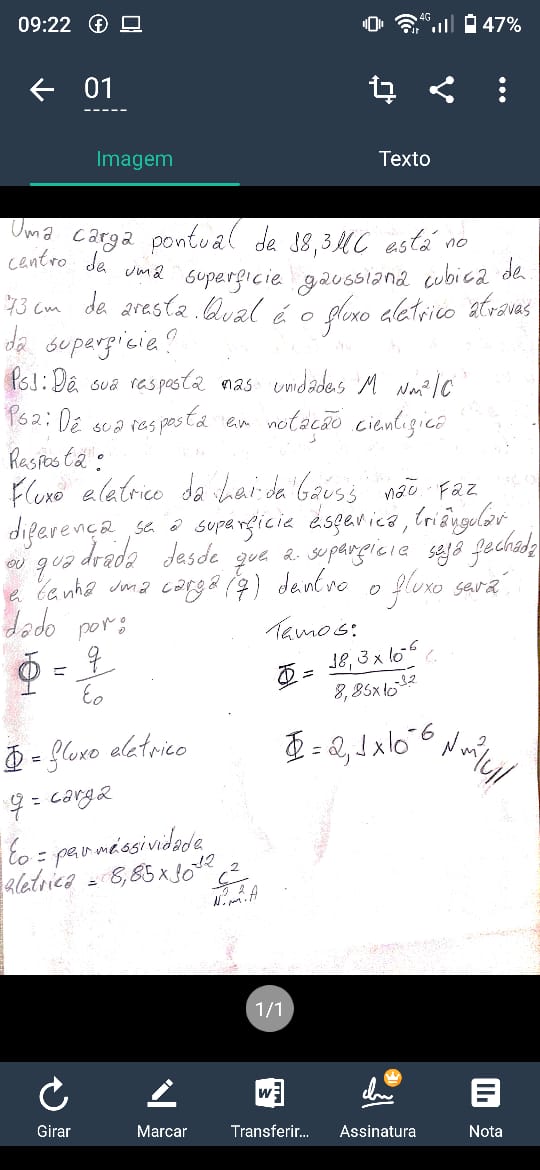 09:22
4G
47%
01
Imagem
Texto
Uma carga pontual de 18,3MC está no
centro de uma superficie gaussiana cubica de
73 cm de aresta. Qual é o fluxo eletrico atraves
da superficie?
Ps1: Dê sua resposta nas unidades M Nm²/C
Ps2: Dê sua resposta em notação cientifica
Resposta:
Fluxo eletrico da Lei da Gauss não Faz
diferença se a superficie esferica, triângular
ou quadrada desde que a superficie seja fechada
e tenha uma carga (q) dentro o fluxo será
dado por:
Φ = q/ε₀
Φ = fluxo eletrico
q = carga
ε₀ =
eletrica = 8,85x10⁻¹² C²/N.m².A
Temos:
Φ = 18,3x10⁻⁶/8,85x10⁻¹²
Φ = 2,1x10⁻⁶ Nm²/C//
1/1
Girar
Marcar
W
Transferir...
Assinatura
Nota